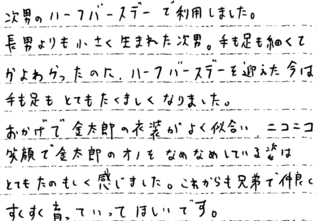 次男のハーフバースデーで利用しました。
長男よりも小さく生まれた次男。手も足も細くて
かよわかったのに、ハーフバースデーを迎えた今は
手も足もとてもたくましくなりました。
おかげで金太郎の衣装がよく似合い、ニコニコ
笑顔で金太郎のオノをなめなめしている姿は
とてもたのもしく感じました。これからも兄弟で仲良く
すくすく育っていってほしいです。